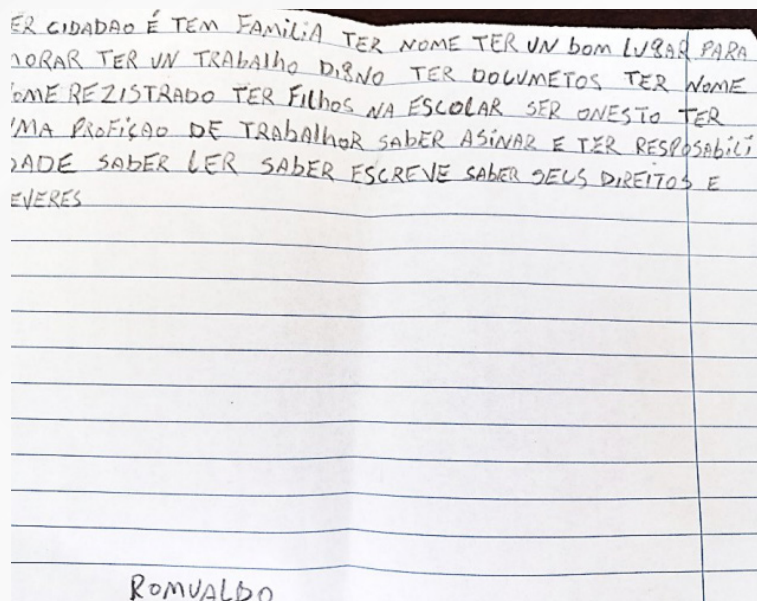 ER CIDADAO É TEM FAMILIA TER NOME TER UN bom LUGAR PARA
MORAR TER UN TRAbAlho DIGNO TER DOCUMETOS TER NOME
OME REZISTRADO TER FilhoS NA ESCOLAR SER ONESTO TER
UMA PROFIÇAO DE TRAbAlhoR SAbER ASiNAR E TER RESPOSAbiLI
DADE SAbER LER SAbER ESCREVE SAbER SEUS DIREITOS E
EVERES
ROMUALDO